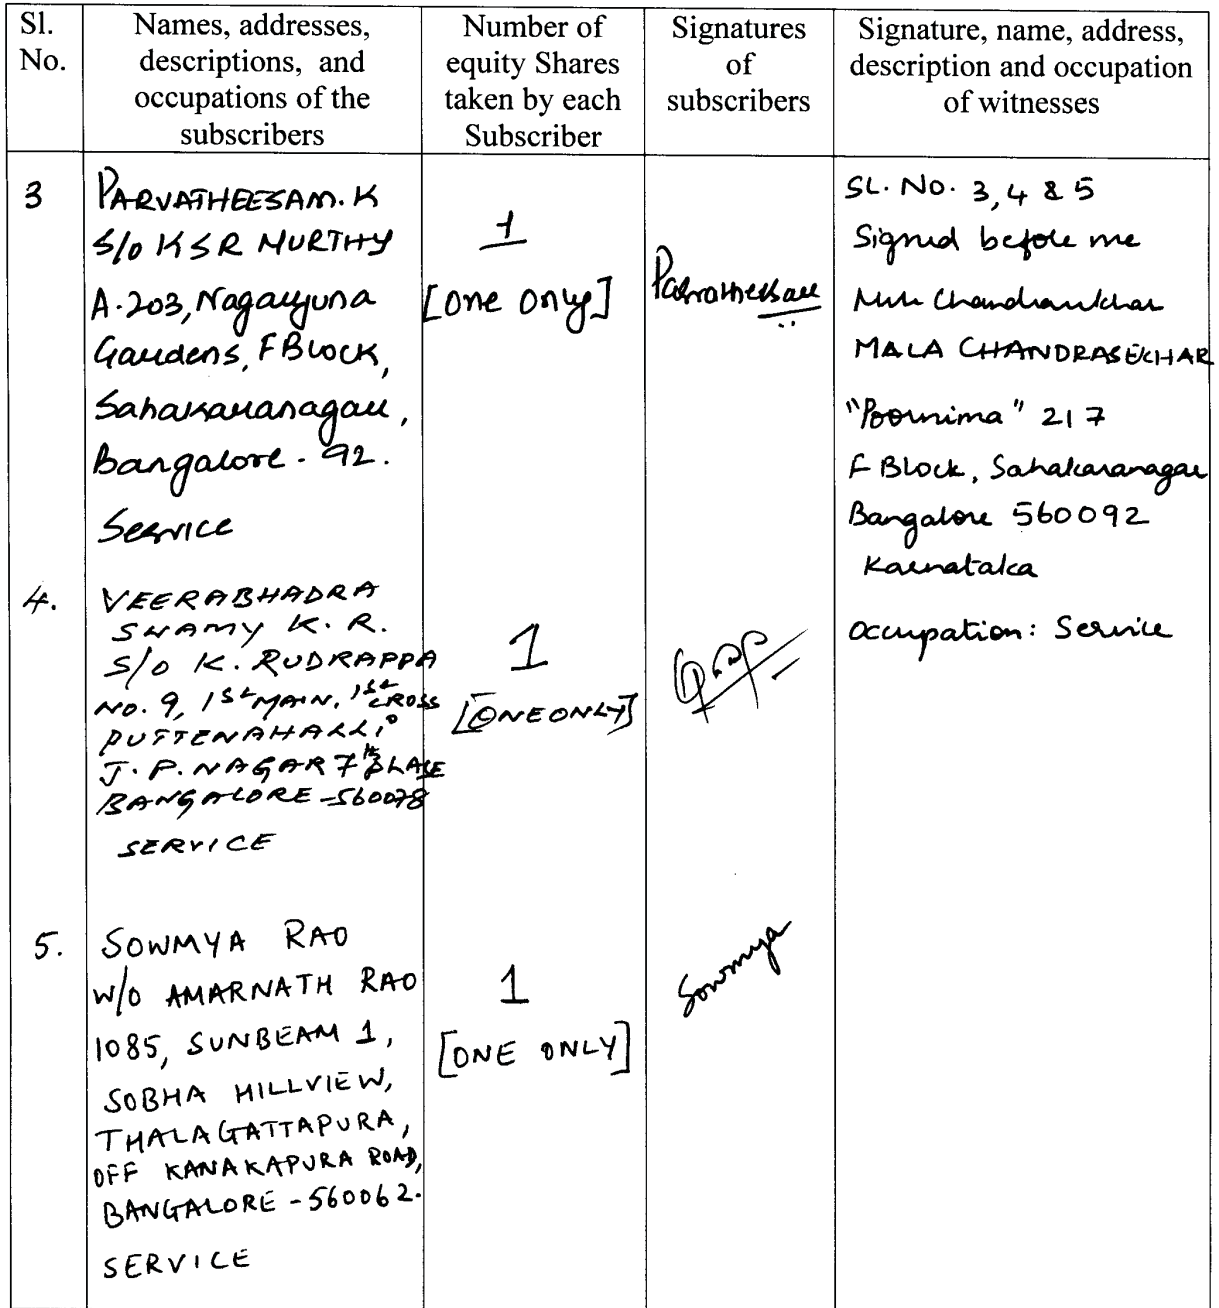 Sl. No.
Names, addresses, descriptions, and occupations of the subscribers
Number of equity Shares taken by each Subscriber
Signatures of subscribers
Signature, name, address, description and occupation of witnesses
3
PARVATHEESAM. K
S/o K S R MURTHY
A-203, Nagarjuna
Gardens, F Block,
Sahakaranagar,
Bangalore - 92.
Service
1
[One Only]
SL. No. 3, 4 & 5
Signed before me
MALA CHANDRASEKHAR
"Poornima" 217
F Block, Sahakaranagar
Bangalore 560092
Karnataka
Occupation: Service
4.
VEERABHADRA
SWAMY K. R.
S/o K. RUDRAPPA
NO. 9, 1st MAIN, 1st CROSS
PUTTENAHALLI
J. P. NAGAR 7th PHASE
BANGALORE - 560078
SERVICE
1
[ONE ONLY]
5.
SOWMYA RAO
W/o AMARNATH RAO
1085, SUNBEAM 1,
SOBHA HILLVIEW,
THALAGATTAPURA,
OFF KANAKAPURA ROAD,
BANGALORE - 560062.
SERVICE
1
[ONE ONLY]
Sowmya